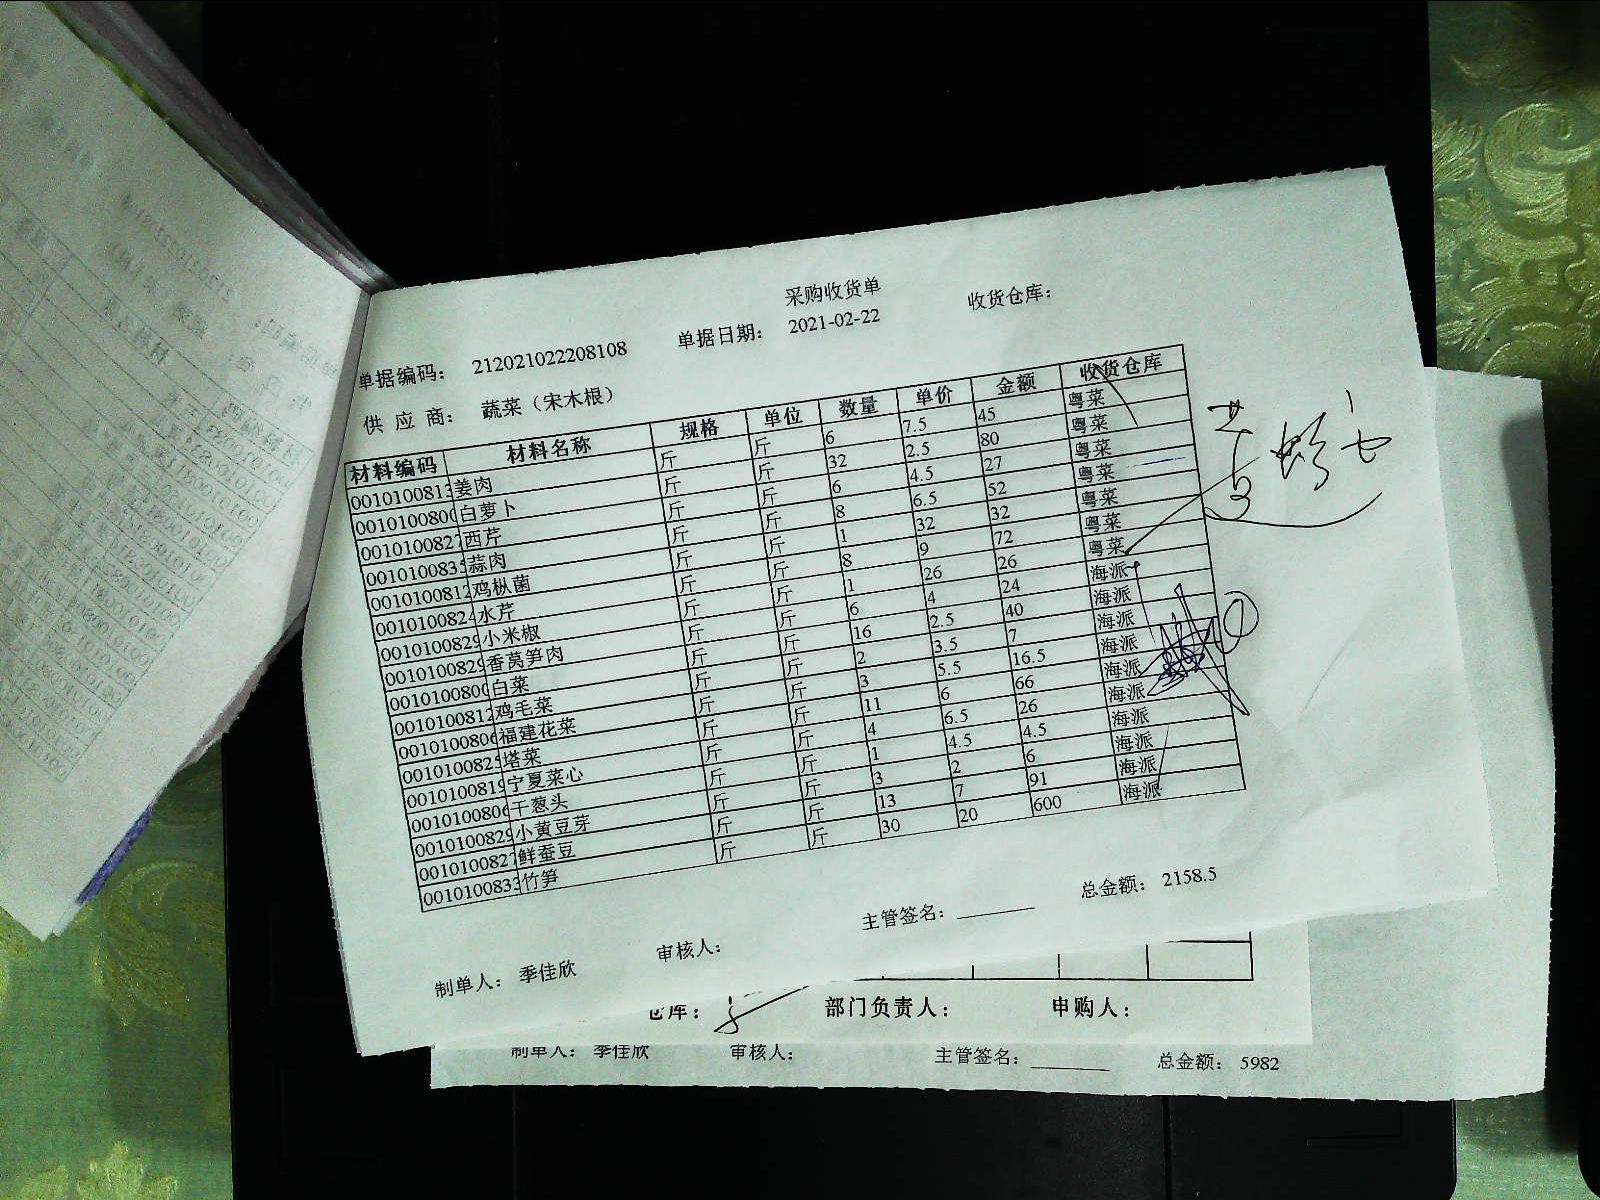 采购收货单
单据编码： 212021022208108 单据日期： 2021-02-22 收货仓库：
供 应 商： 蔬菜（宋木根）
材料编码 材料名称 规格 单位 数量 单价 金额 收货仓库
001010081 姜肉 斤 斤 6 7.5 45 粤菜
001010080 白萝卜 斤 斤 32 2.5 80 粤菜
001010082 西芹 斤 斤 6 4.5 27 粤菜
001010083 蒜肉 斤 斤 8 6.5 52 粤菜
001010081 鸡枞菌 斤 斤 1 32 32 粤菜
001010082 水芹 斤 斤 8 9 72 粤菜
001010082 小米椒 斤 斤 1 26 26 粤菜
001010082 香莴笋肉 斤 斤 6 4 24 海派
001010080 白菜 斤 斤 16 2.5 40 海派
001010081 鸡毛菜 斤 斤 2 3.5 7 海派
001010080 福建花菜 斤 斤 3 5.5 16.5 海派
001010082 塔菜 斤 斤 11 6 66 海派
001010081 宁夏菜心 斤 斤 4 6.5 26 海派
001010080 干葱头 斤 斤 1 4.5 4.5 海派
001010082 小黄豆芽 斤 斤 3 2 6 海派
001010082 鲜蚕豆 斤 斤 13 7 91 海派
001010083 竹笋 斤 斤 30 20 600 海派
①
制单人： 季佳欣 审核人： 主管签名： 总金额： 2158.5
仓库： 部门负责人： 申购人：
制单人： 季佳欣 审核人： 主管签名： 总金额： 5982